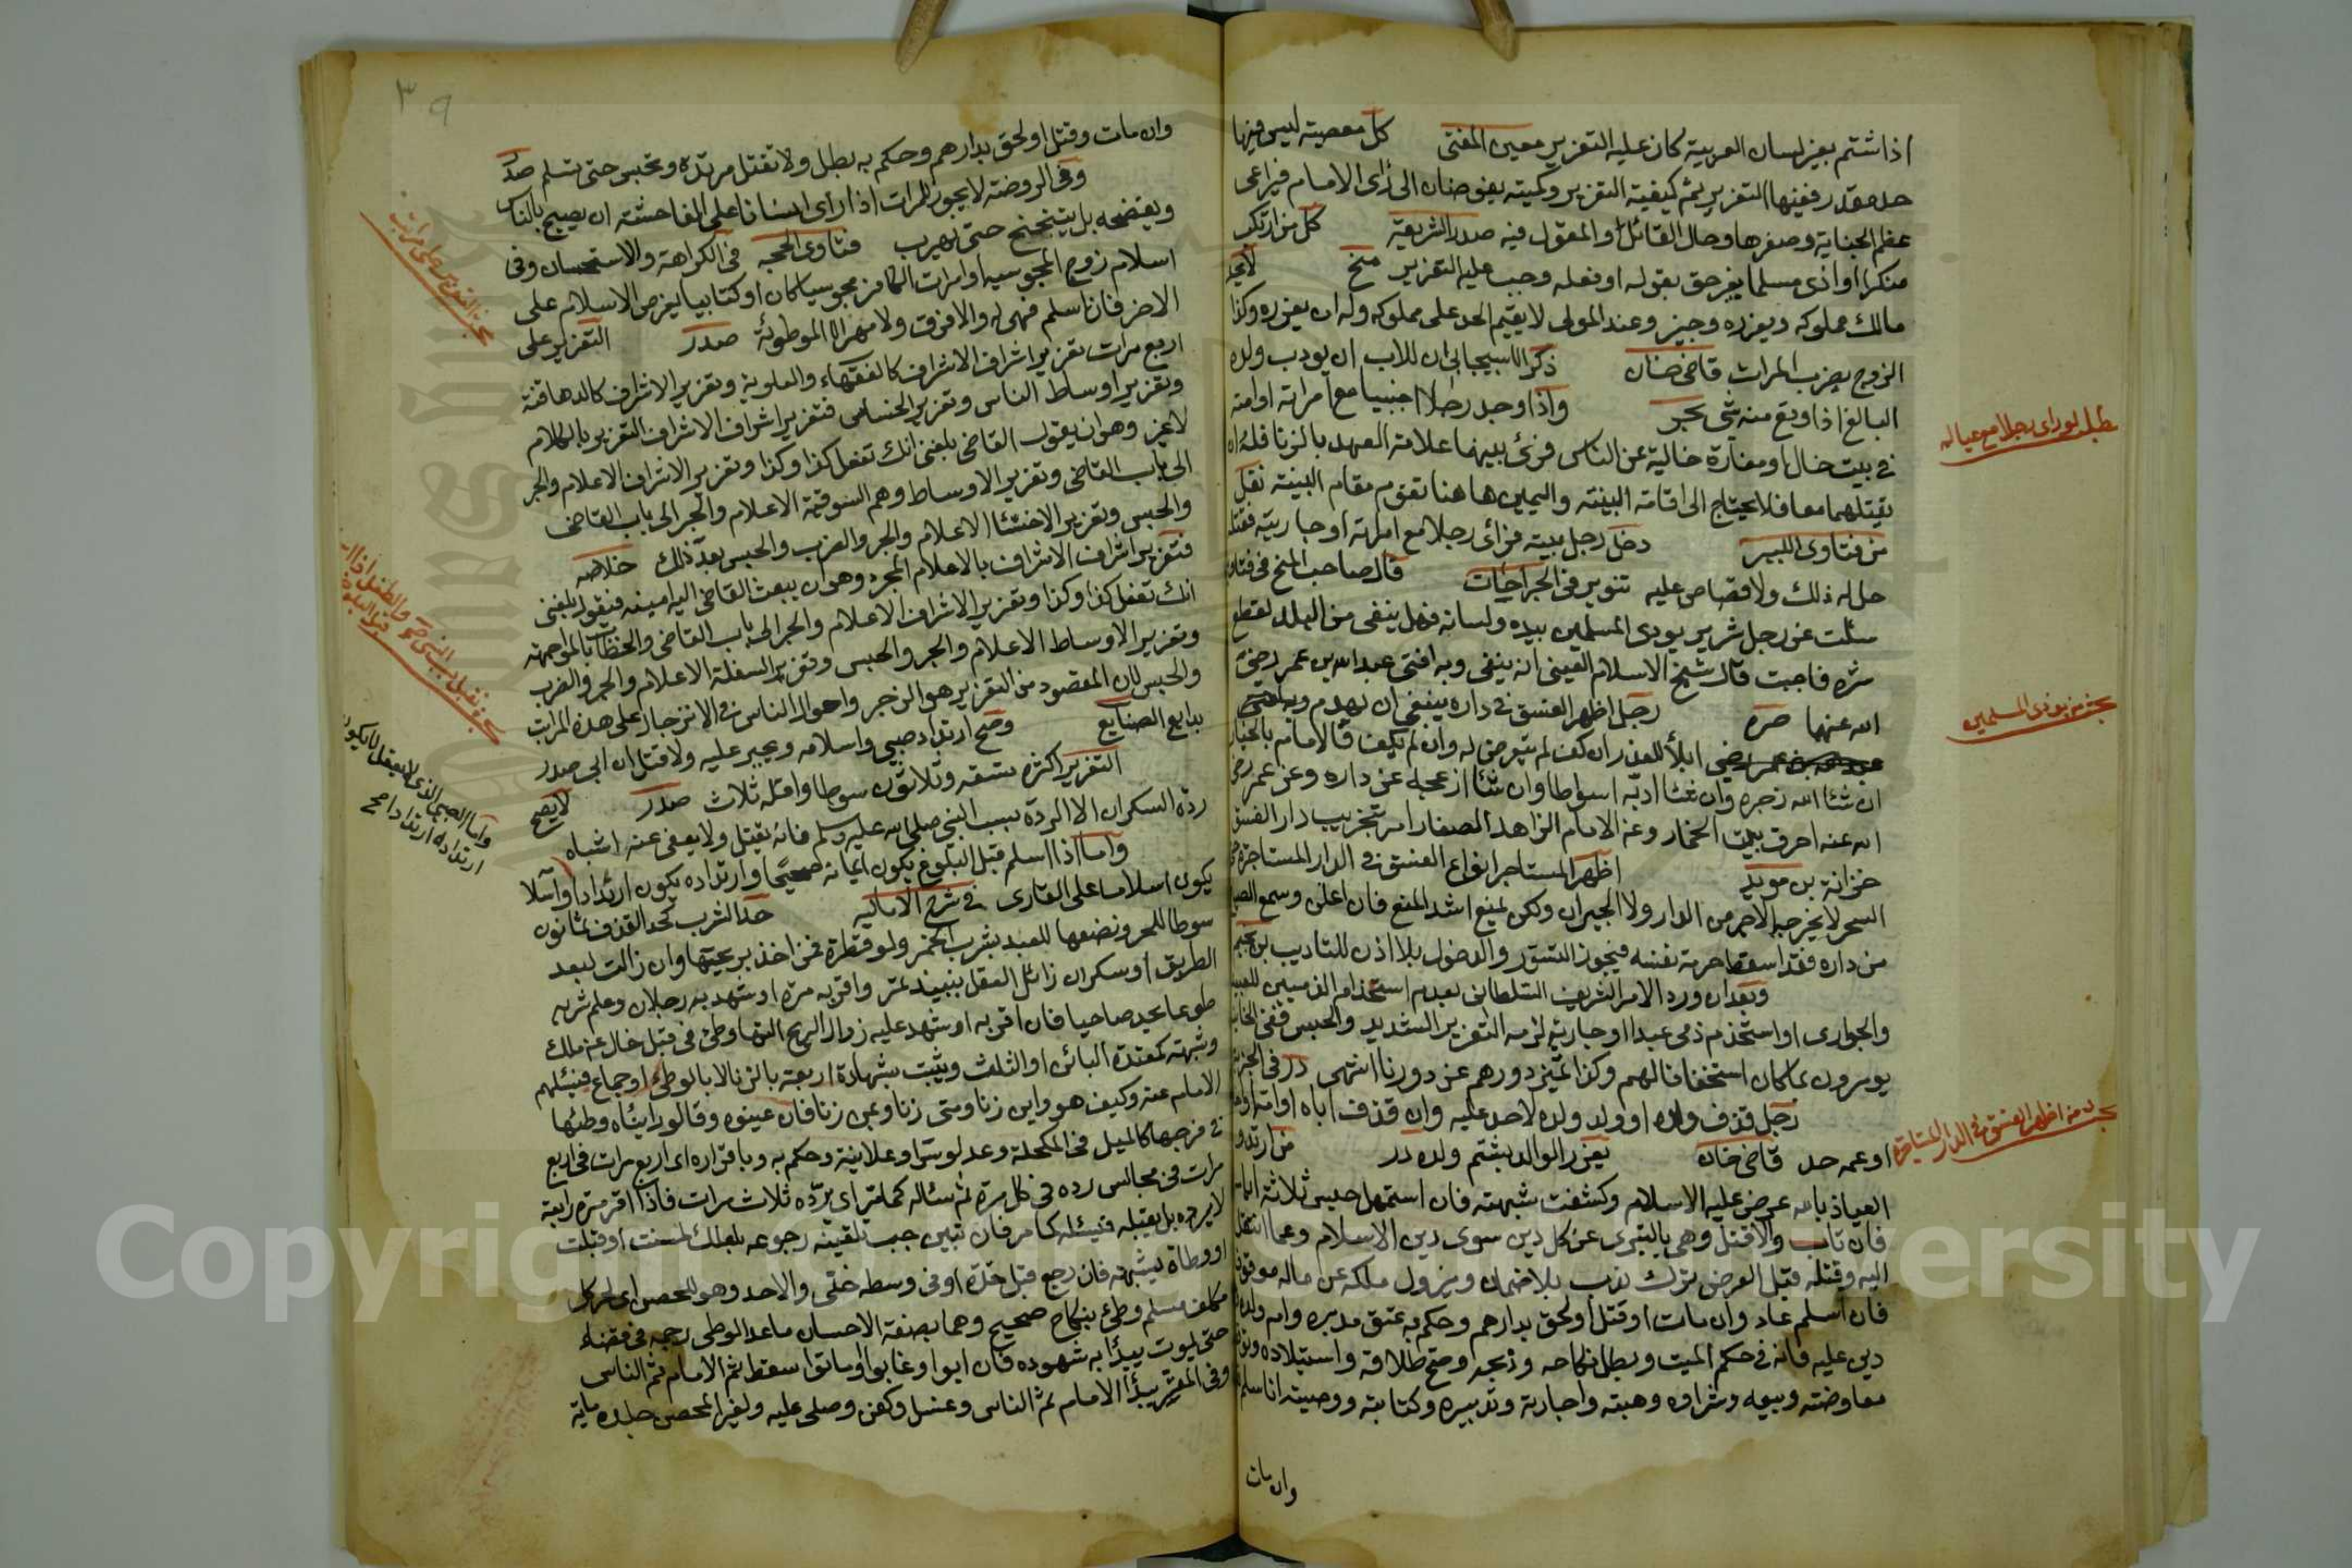 اذا شتم بغير لسان العربية كان عليه التعزير معين المفتى كل معصية ليس فيها
حد مقدر ففيها التعزير ثم كيفية التعزير وكميته يفوضان الى رأى الامام فيراعى
عظم الجناية وصغرها وحال القائل والمقول فيه صدر الشريعة كل من ارتكب
منكرا او اذى مسلما بغير حق بقوله او فعله وجب عليه التعزير منح لا يحد
مالك مملوكه ويعزره وجيز وعند المولى لا يقيم الحد على مملوكه وله ان يعزره وكذا
الزوج يضرب المرات قاضى خان ذكر الاسبيجابى ان للاب ان يودب ولده
البالغ اذا وقع منه شى بحر واذا وجد رجلا اجنبيا مع امراته او امته
فى بيت خال او مفازة خالية عن الناس فرئى بينهما علامة العهد بالزنا فله ان
يقتلهما معا فلا يحتاج الى اقامة البينة واليمين ها هنا تقوم مقام البينة نقل
من فتاوى دخل رجل بيته فرأى رجلا مع امراته او جاريته فقتله
حل له ذلك ولا قصاص عليه تنوير فى الجراحات قال صاحب المنح فى فتاو
سئلت عن رجل شرير يودى المسلمين بيده ولسانه فهل ينفى من البلد لقطع
شره فاجبت قال شيخ الاسلام العينى انه ينفى وبه افتى عبد الله بن عمر رضى
الله عنهما صرة رجل اظهر الفسق فى داره ينبغى ان يهدم
ابلأ للعذر ان كف لم يتعرض له وان لم يكف فالامام بالخيار
ان شئا الله زجره وان شئا ادبه اسواطا وان شئا ازعجه عن داره وعن عمر رضى
الله عنه احرق بيت الخمار وعن الامام الزاهد الصفار امر بتخريب دار الفسق
خزانة اظهر المستاجر انواع الفسق فى الدار المستاجرة
السحر لا يخرجه الاجر من الدار ولا الجيران ولكن يمنع اشد المنع فان اعلن وسمع
من داره فقد اسقط حرمة نفسه فيجوز التسور والدخول بلا اذن للتاديب بن نجيم
وبعد ان ورد الامر الشريف السلطانى بعدم استخدام الذميين للعبيد
والجوارى او استخدم ذمى عبدا او جارية لزمه التعزير الشديد والحبس ففى الخانية
يومرون بما كان استخفافا لهم وكذا تميز دورهم عن دورنا انتهى درر فى الجزية
رجل قذف ولده او ولد ولده لاحد عليه وان قذف اباه او امه او
او عمه حد قاضى خان يعزر الوالد بشتم ولده در من ارتد و
العياذ بالله عرض عليه الاسلام وكشفت شبهته فان استمهل حبس ثلاثة ايام
فان تاب والا قتل وهى بالتبرى عن كل دين سوى دين الاسلام وعما انتقل
اليه وقتله قبل العرض ترك ندب بلا ضمان ويزول ملكه عن ماله موقوفا
فان اسلم عاد وان مات او قتل او لحق بدارهم وحكم به عتق مدبره وام ولده
دين عليه فانه فى حكم الميت وبطل نكاحه وذبحه وصح طلاقه واستيلاده
معاوضته وبيعه وشراوه وهبته واجارته وتدبيره وكتابته ووصيته ان اسلم
وان مات
بحث من يوذى المسلمين
بحث من اظهر الفسق فى الدار المستاجرة
٣٩
وان مات وقتل او لحق بدارهم وحكم به بطل ولا تقتل مرتدة وتحبس حتى تسلم صدر
وفى الروضة لا يجوز للمرات اذا رأى انسانا على الفاحشة ان يصيح بالناس
ويفضحه بل يتنحنح حتى يهرب فتاوى الحجه فى الكراهة والاستحسان وفى
اسلام زوج المجوسيه او امرات الكافر مجوسيا كان او كتابيا يعرض الاسلام على
الاخر فان اسلم فهى له والا فرق ولا مهر الا الموطوئة صدر التعزير على
اربع مرات تعزير اشراف الاشراف كالفقهاء والعلوية وتعزير الاشراف كالدهاقنة
وتعزير اوساط الناس وتعزير الخساس فتعزير اشراف الاشراف التعزير بالكلام
لا غير وهو ان يقول القاضى بلغنى انك تفعل كذا وكذا وتعزير الاشراف الاعلام والجر
الى باب القاضى وتعزير الاوساط وهم السوقية الاعلام والجر الى باب القاضى
والحبس وتعزير الاخسا الاعلام والجر والضرب والحبس بعد ذلك خلاصه
فتعزير اشراف الاشراف بالاعلام المجرد وهو ان يبعث القاضى اليه امينه فيقول بلغنى
انك تفعل كذا وكذا وتعزير الاشراف الاعلام والجر الى باب القاضى والخطاب بالمواجهة
وتعزير الاوساط الاعلام والجر والحبس وتعزير السفلة الاعلام والجر والضرب
والحبس لان المقصود من التعزير هو الزجر واحوال الناس فى الانزجار على هذه المرات
بدايع الصنايع وصح ارتداد صبى واسلامه ويجبر عليه ولا قتل ان ابى صدر
التعزير اكثره تسعة وثلاثون سوطا واقله ثلاث صدر لا يصح
ردة السكران الا الردة بسب النبى صلى الله عليه وسلم فانه يقتل ولا يعفى عنه اشباه
واما اذا اسلم قبل البلوغ يكون ايمانه صحيحا وارتداده يكون ارتدادا واسلا
يكون اسلاما على القارى فى شرح الاماليه حد الشرب كحد القذف ثمانون
سوطا للحر ونصفها للعبد بشرب الخمر ولو قطرة فمن اخذ بريحها وان زالت لبعد
الطريق او سكران زائل العقل بنبيذ تمر واقر به مرة او شهد به رجلان وعلم شربه
طوعا يحد صاحيا فان اقر به او شهد عليه زوال الريح الزنا وطئ فى قبل خال عن ملك
وشبهته كمعتدة البائن او الثلث ويثبت بشهادة اربعة بالزنا لا بالوطئ او جماع فيسئلهم
الامام عنه وكيف هو واين زنا ومتى زنا وبمن زنا فان عينوه وقالوا رايناه وطئها
فى فرجها كالميل فى المكحلة وعدلوا سرا وعلانية وحكم به وباقراره اى اربع مرات فى اربع
مرات فى مجالس رده فى كل مرة ثم سئاله كما مر اى يرده ثلاث مرات فاذا اقر مرة رابعة
لا يرده بل يقبله فيسئله كما مر فان تبين حب تلقينه رجوعه بلعلك لمست او قبلت
او وطاة بشبهة فان رجع قبل حده او فى وسطه خلى والا حد وهو للمحصن اى لحر كل
مكلف مسلم وطئ بنكاح صحيح وهما بصفة الاحسان ما عدا الوطى رجمه فى فضاء
حتى يموت يبدأ به شهوده فان ابوا او غابوا او ماتوا سقط ثم الامام ثم الناس
وفى المقر يبدأ الامام ثم الناس وغسل وكفن وصلى عليه ولغير المحصن جلده ماية
واما الصبى الذى لا يعقل لا يكون
ارتداده ارتدادا صح